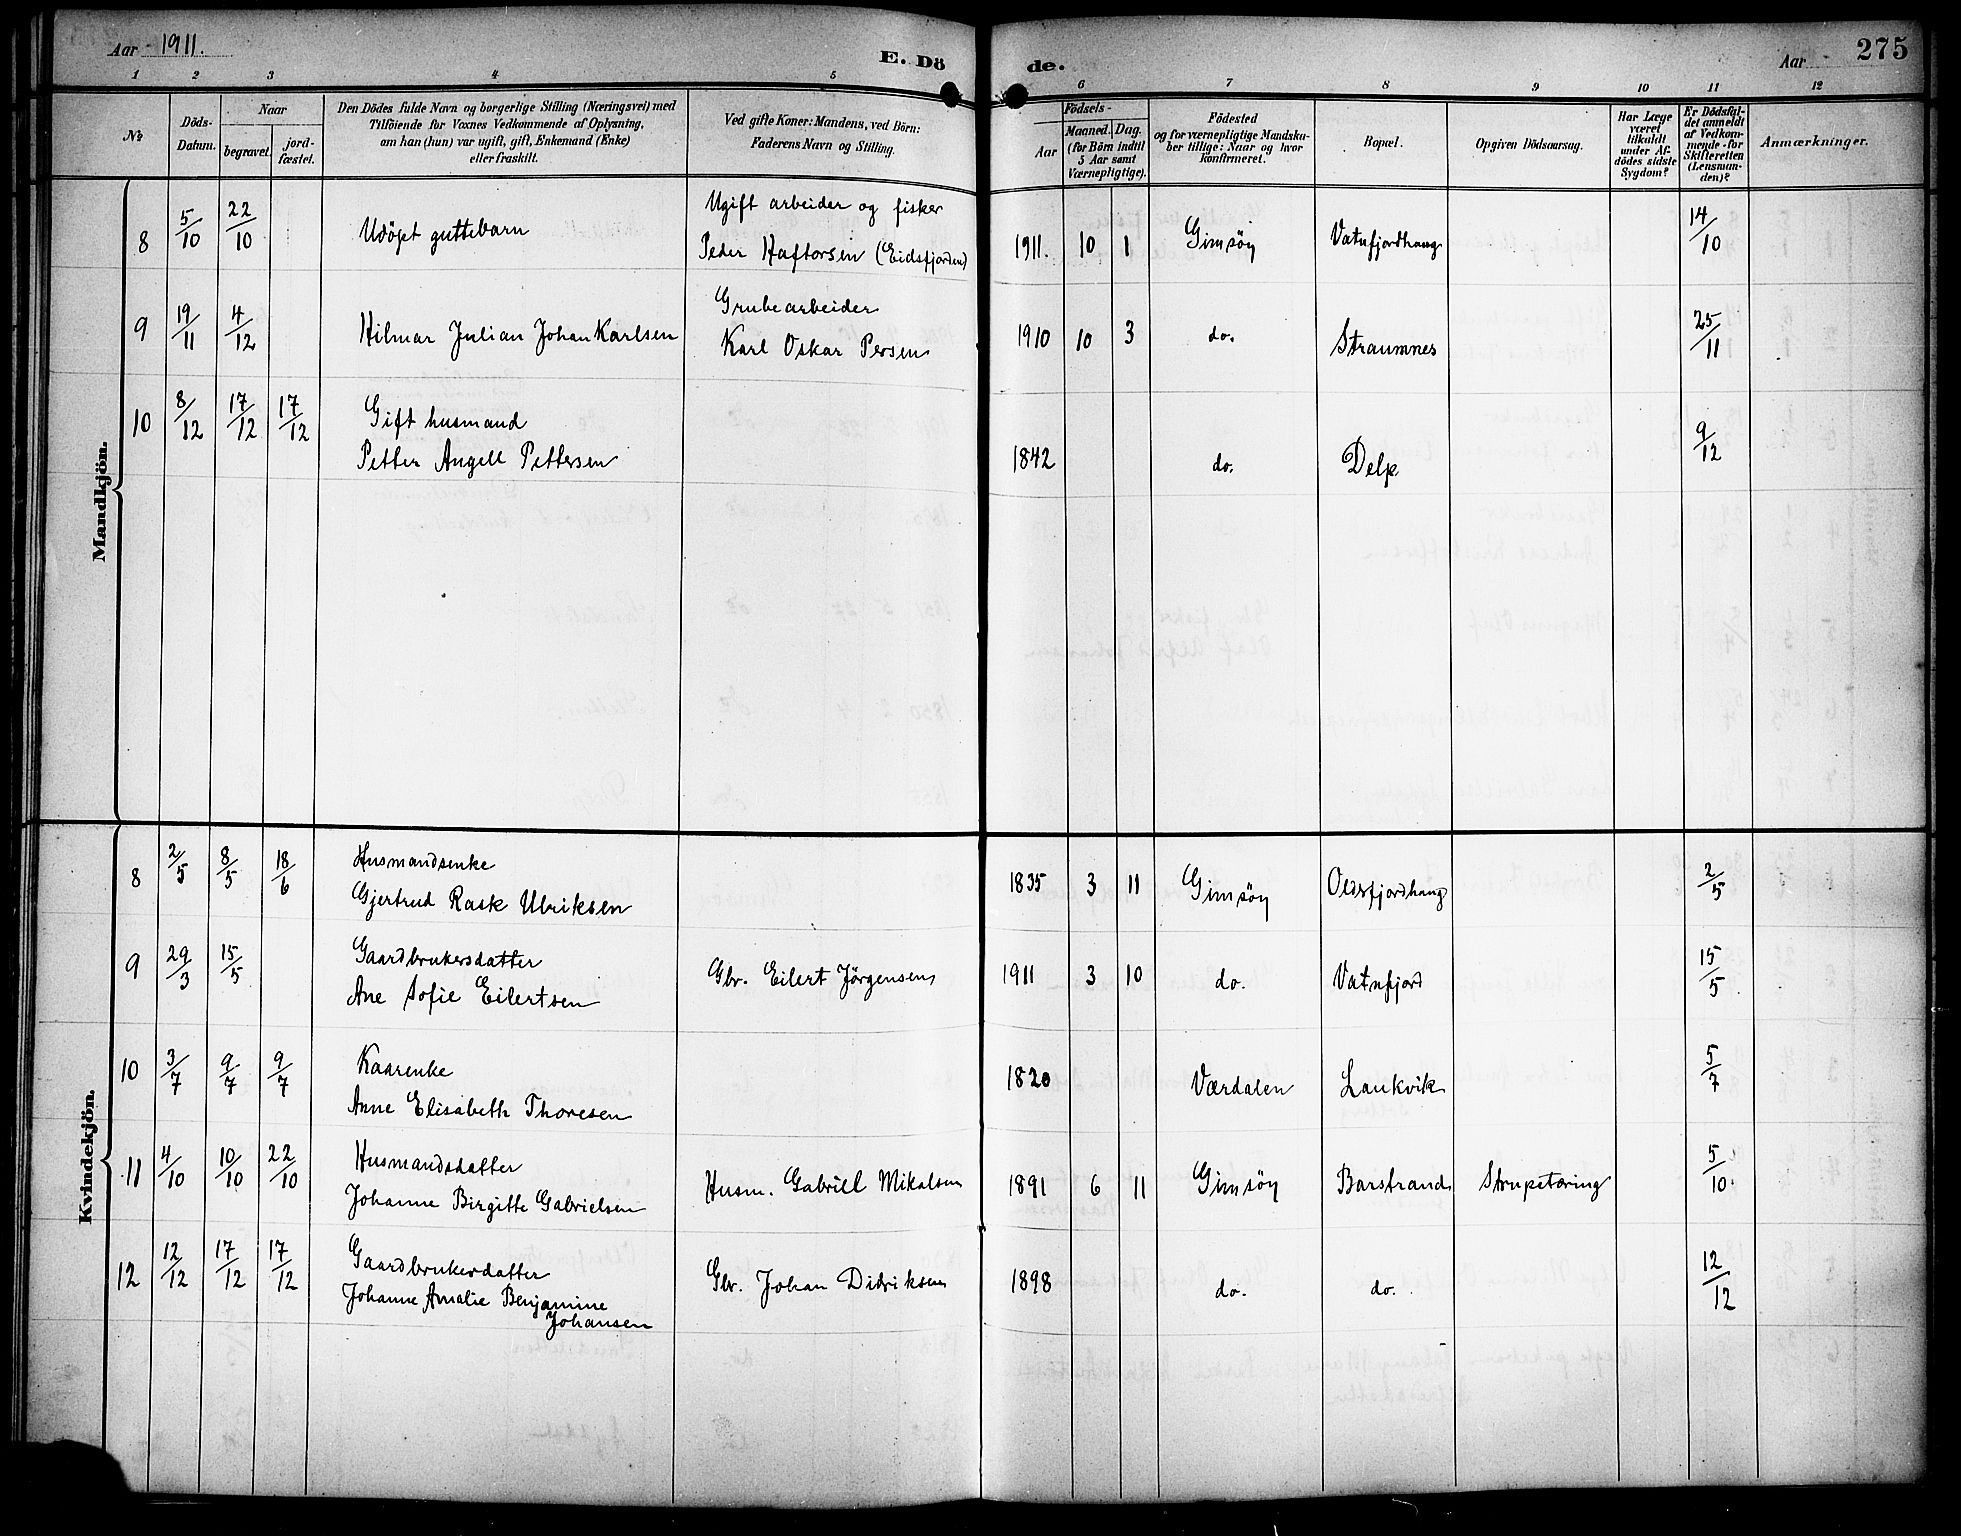 Aar 1911.
E. Dö de.
Aar
275
1 2 3 4 5 6 7 8 9 10 11 12
No
Döds-
Datum.
Naar
begravet.
jord-
fæstet.
Den Dödes fulde Navn og borgerlige Stilling (Næringsvei) med
Tilföiende for Voxnes Vedkommende af Oplysning,
om han (hun) var ugift, gift, Enkemand (Enke)
eller fraskilt.
Ved gifte Koner: Mandens, ved Börn:
Faderens Navn og Stilling.
Födsels-
Aar
Maaned. Dag.
(for Börn indtil
5 Aar samt
Værnepligtige).
Födested
og for værnepligtige Mandska-
ber tillige: Naar og hvor
konfirmeret.
Bopæl.
Opgiven Dödsaarsag.
Har Læge
været
tilkaldt
under Af-
dödes sidste
Sygdom?
Er Dödsfal-
det anmeldt
af Vedkom-
mende for
Skifteretten
(Lensman-
den)?
Anmærkninger.
Mandkjön.
8 5/10 22/10 Udöpt guttebarn
Ugift arbeider og fisker
Peder Haftorsen (Eidsfjorden)
1911. 10 1 Gimsöy Vatnfjordhaug 14/10
9 19/11 4/12 Hilmar Julian Johan Karlsen
Grubearbeider
Karl Oskar Persen
1910 10 3 do. Straumnes 25/11
10 8/12 17/12 17/12 Gift husmand
Petter Angell Pettersen
1842 do. Delp 9/12
Kvindekjön.
8 2/5 8/5 18/6 Husmandsenke
Gjertrud Rask Ulriksen
1835 3 11 Gimsöy Oldsfjordhaug 2/5
9 29/3 15/5 Gaardbrukersdatter
Ane Sofie Eilertsen
Gbr. Eilert Jörgensen
1911 3 10 do. Vatnfjord 15/5
10 3/7 9/7 9/7 Kaarenke
Anne Elisabeth Thoresen
1820 Værdalen Laukvik 5/7
11 4/10 10/10 22/10 Husmandsdatter
Johanne Birgitte Gabrielsen
Husm. Gabriel Mikalsen
1891 6 11 Gimsöy Barstrand Strupetæring 5/10
12 12/12 17/12 17/12 Gaardbrukerdatter
Johanne Amalie Benjamine
Johansen
Gbr. Johan Didriksen
1898 do. do. 12/12